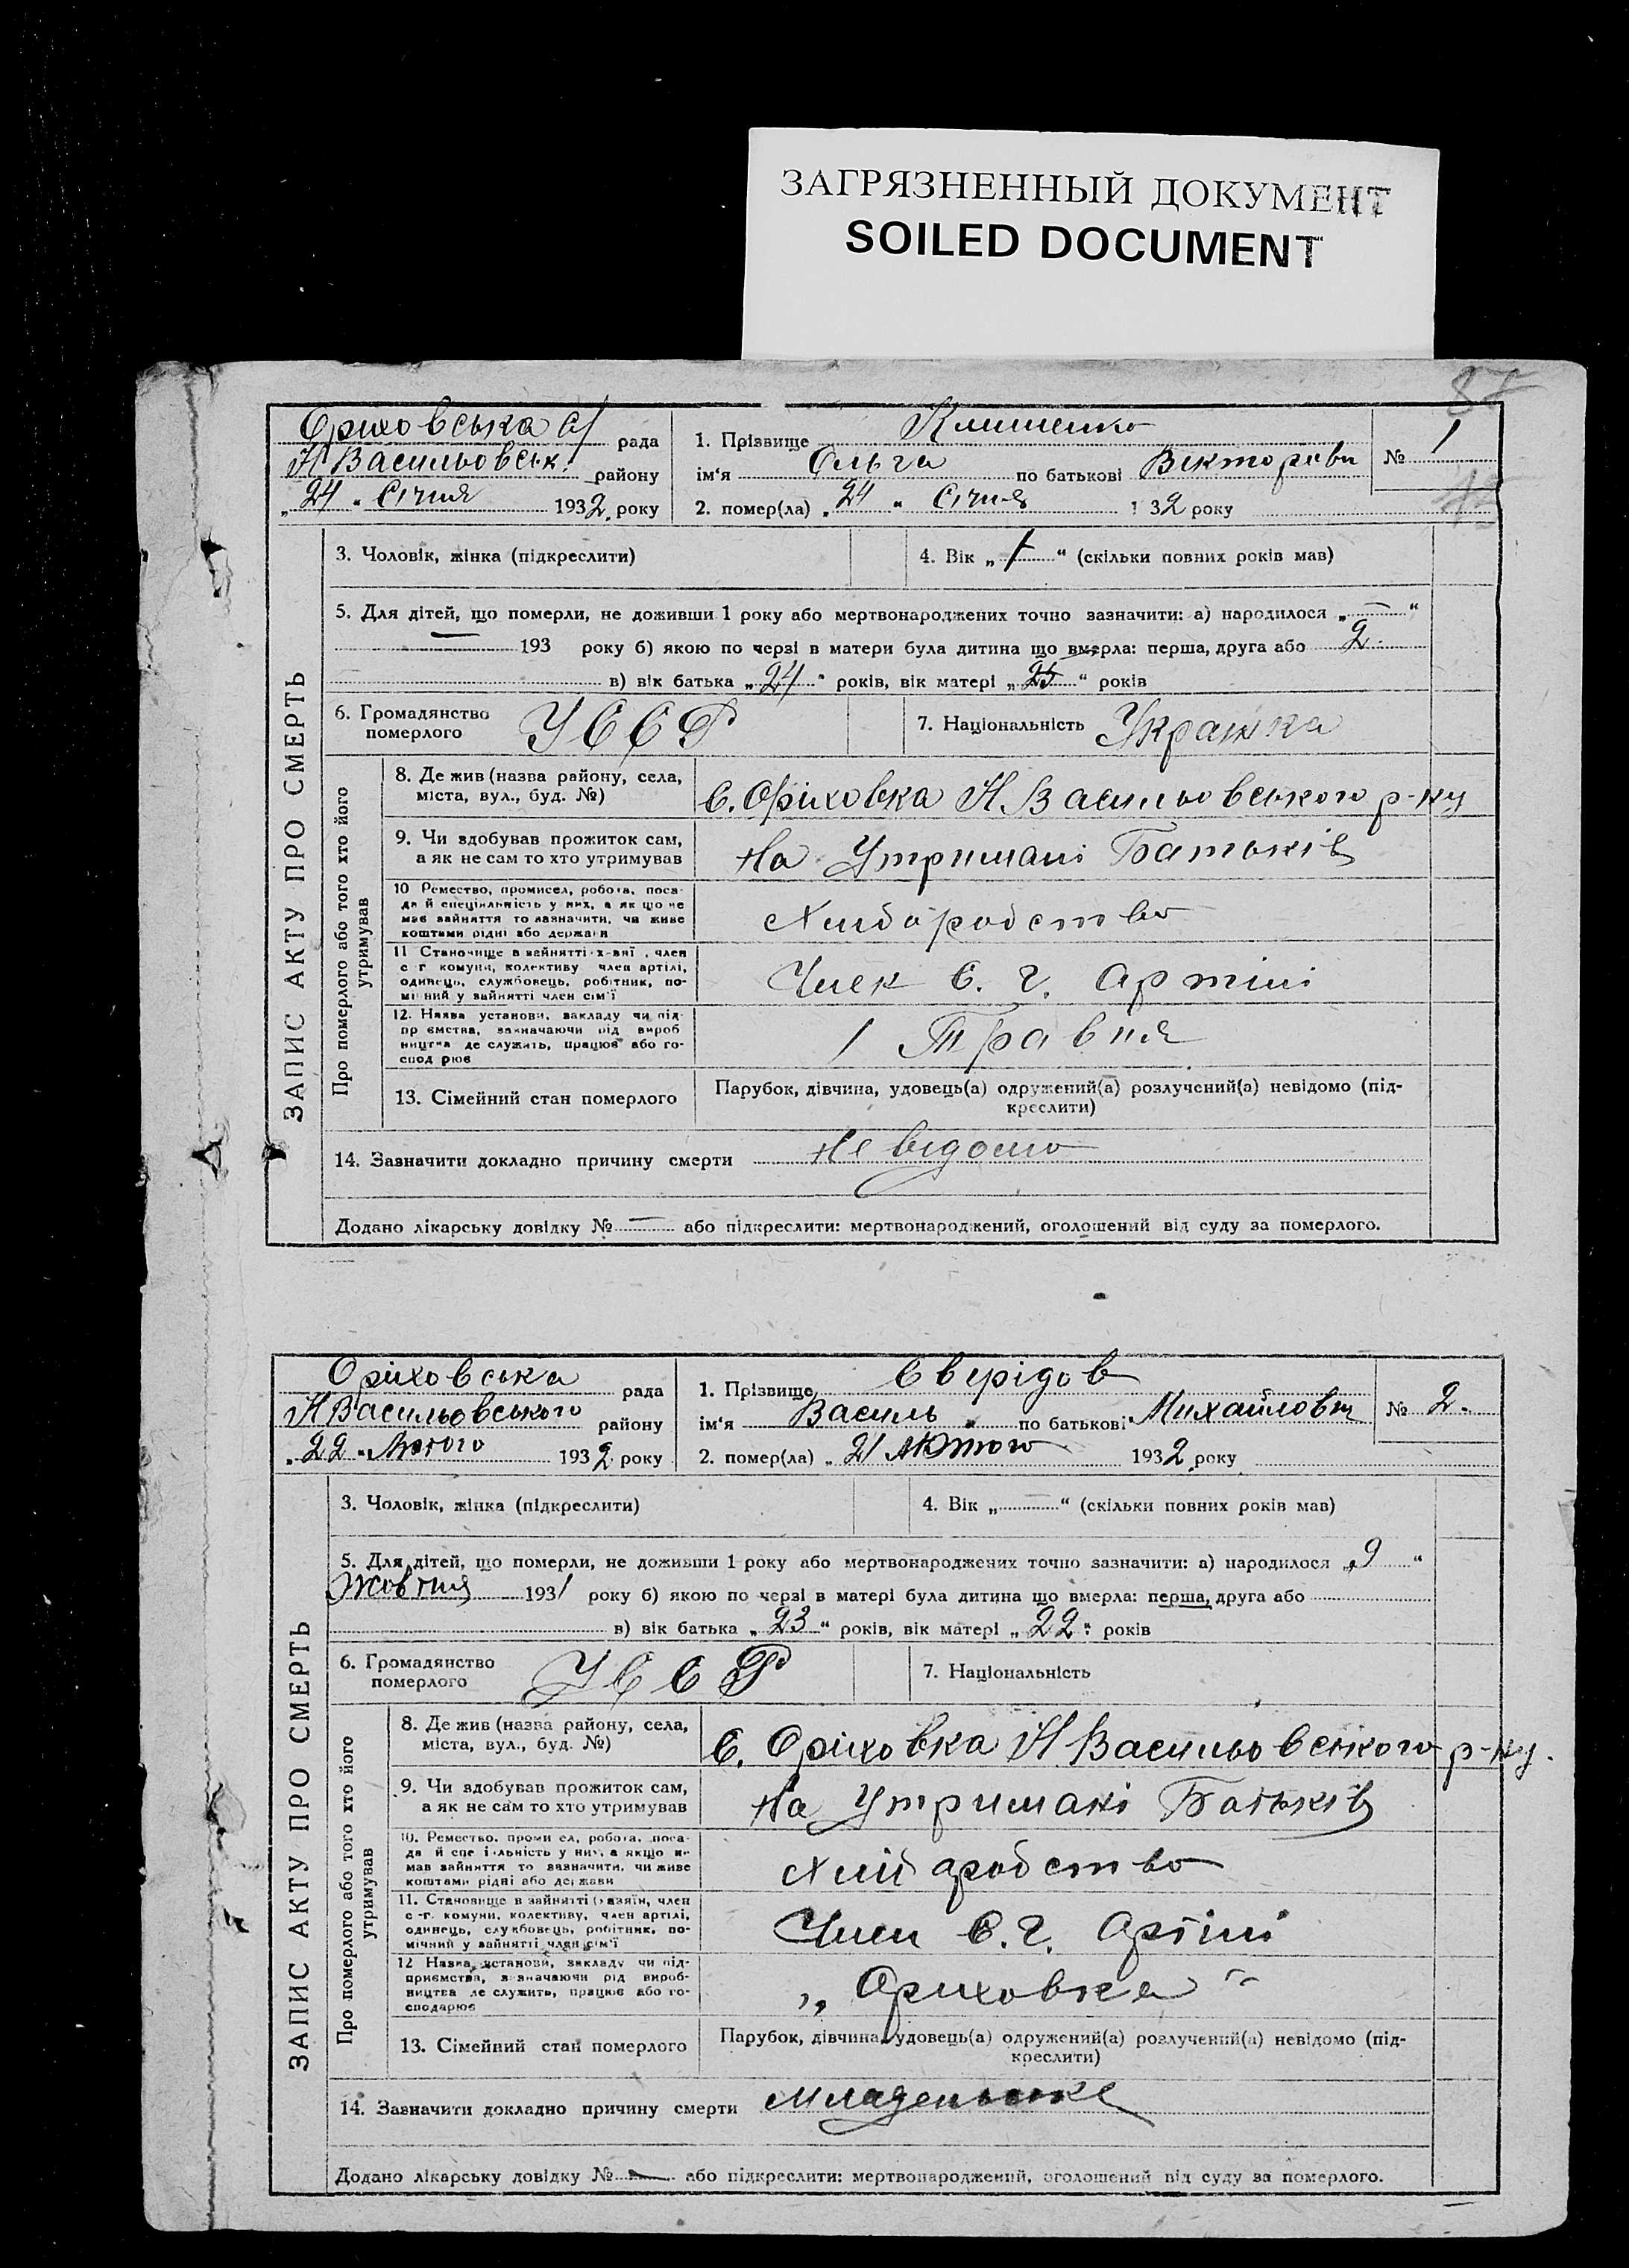 ЗАГРЯЗНЕННЫЙ ДОКУМЕНТ
SOILED DOCUMENT
87
Оріховська с/ рада
Н Васильовськ. району
„ 24 " Січня 1932 року
1. Прізвище Клименко
ім‘я Ольга по батькові Вікторовн
№ 1
2. помер(ла) „ 24 " Січня 1 32 року
ЗАПИС АКТУ ПРО СМЕРТЬ
3. Чоловік, жінка (підкреслити)
4. Вік „ 1 “ (скільки повних років мав)
5. Для дітей, що померли, не доживши 1 року або мертвонароджених точно зазначити: а) народилося „ — “
— 193 року б) якою по черзі в матери була дитина що вмерла: перша, друга або 2.
в) вік батька „ 24 " років, вік матері „ 25 “ років
6. Громадянство померлого УССР
7. Національність Українка
Про померлого або того хто його утримував
8. Де жив (назва району, села,
міста, вул., буд. №)
С. Оріховка Н. Васильовського р-ну
9. Чи здобував прожиток сам,
а як не сам то хто утримував
На Утримані Батьків
10 Ремество, промисел, робота, поса-
да й спеціяльність у них, а як що не
має зайняття то зазначити, чи живе
коштами рідні або держави
Хліборобство
11 Становище в зайнятті х-вяї , член
с г комуни, колективу член артілі,
одинець, службовець, робітник, по-
мічний у зайнятті член сім‘ї
Член С. Г. Артілі
12. Назва установи, закладу чи під-
пр ємства, зазначаючи під вироб
ництва де служить, працює або го-
спод рює
1 Травня
13. Сімейний стан померлого
Парубок, дівчина, удовець(а) одружений(а) розлучений(а) невідомо (під-
креслити)
14. Зазначити докладно причину смерти Не відомо
Додано лікарську довідку № — або підкреслити: мертвонароджений, оголошений від суду за померлого.
Оріховська рада
Н Васильовського району
„ 22 " Лютого 1932 року
1. Прізвище Сверідов
ім‘я Василь по батькові Михайлович
№ 2.
2. помер(ла) „ 21 Лютого 1932 року
ЗАПИС АКТУ ПРО СМЕРТЬ
3. Чоловік, жінка (підкреслити)
4. Вік „ “ (скільки повних років мав)
5. Для дітей, що померли, не доживши 1 року або мертвонароджених точно зазначити: а) народилося „ 9 “
Жовтня 1931 року б) якою по черзі в матері була дитина що вмерла: перша, друга або
в) вік батька „ 23 “ років, вік матері „ 22 “ років
6. Громадянство померлого УССР
7. Національність
Про померлого або того хто його утримував
8. Де жив (назва району, села,
міста, вул., буд. №)
С. Оріховка Н. Васильовського р-ну.
9. Чи здобував прожиток сам,
а як не сам то хто утримував
На Утримані Батьків
10. Ремество, проми ел, робота, поса-
да й спе і льність у них, а якщо не
мав зайняття то зазначити, чи живе
коштами рідні або держави
Хліборобство
11. Становище в зайнятті (хазяїн, член
с-г. комуни, колективу, член артілі,
одинець, службовець, робітник, по-
мічний у зайнятті член сім‘ї
Член С. Г. Артілі
12 Назва установи, закладу чи під-
приємства, зазначаючи рід вироб-
ництва де служить, працює або го-
сподарює
„ Оріховка "
13. Сімейний стан померлого
Парубок, дівчина, удовець(а) одружений(а) розлучений(а) невідомо (під-
креслити)
14. Зазначити докладно причину смерти Младенське
Додано лікарську довідку № — або підкреслити: мертвонароджений, оголошений від суду за померлого.